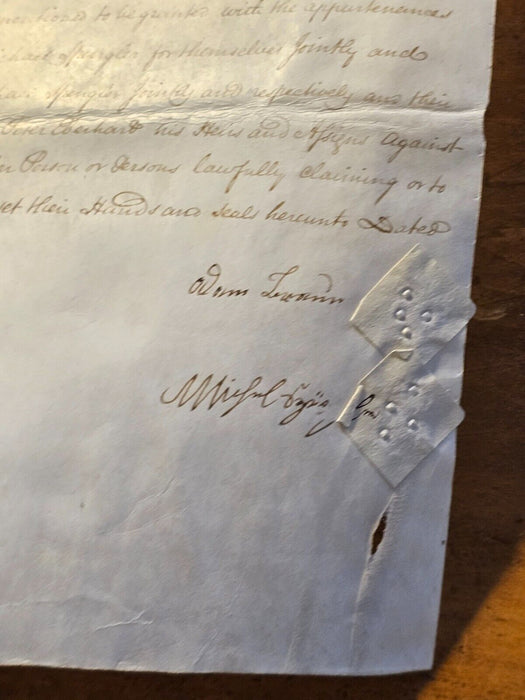 mentioned to be granted with the appurtenances
Michael Spengler for themselves Jointly and
Spengler Jointly and respectively and their
Peter Eberhard his Heirs and Assigns against
Person or Persons lawfully claiming or to
set their Hands and seals hereunto Dated
Adam
Michel